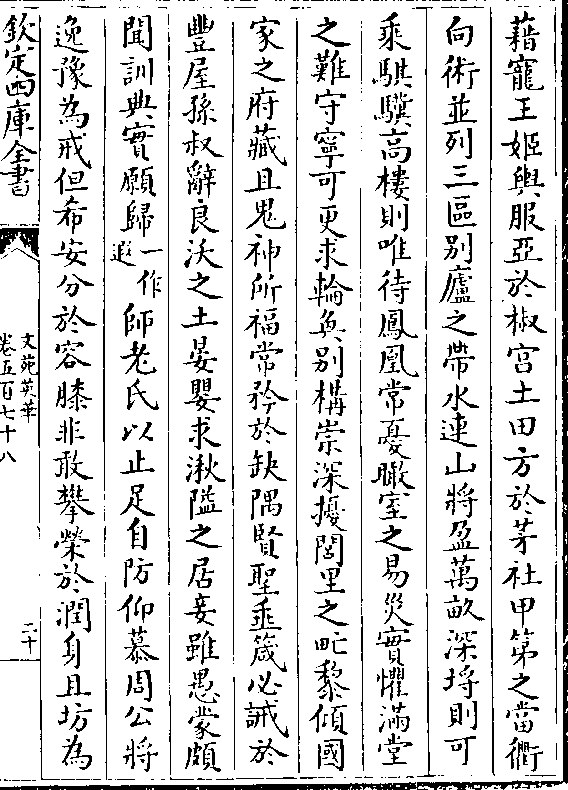 藉寵王姬輿服亞於椒宫土田方於茅社甲第之當衢
向術並列三區别廬之帶水連山將盈萬畝深埒則可
乘騏驥高樓則唯待鳳凰常憂瞰室之易災實懼滿堂
之難守寧可更求輪奐别構崇深擾閭里之甿黎傾國
家之府藏且鬼神所福常矜於缺隅賢聖垂箴必誡於
豐屋孫叔辭良沃之土晏嬰求湫隘之居妾雖愚蒙頗
聞訓典實願歸一作遐師老氏以止足自防仰慕周公將
逸豫為戒但希安分於容膝非敢攀榮於潤身且坊為
欽定四庫全書
文苑英華
卷五百七十八
二十